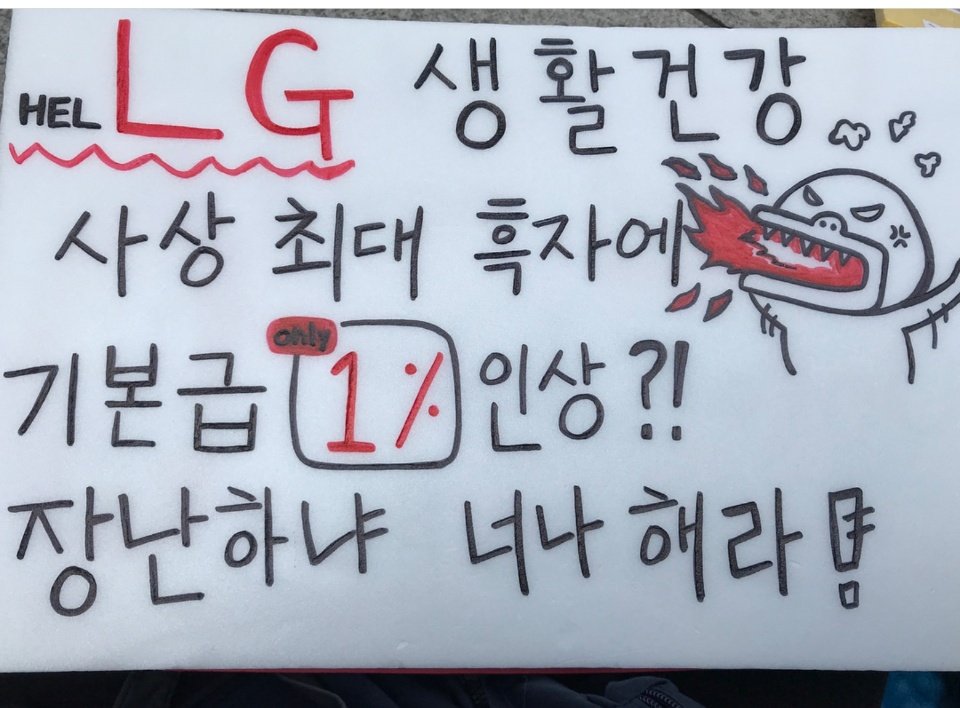 HEL LG 생활건강
사상 최대 흑자에
기본급 only 1% 인상?!
장난하냐 너나 해라!